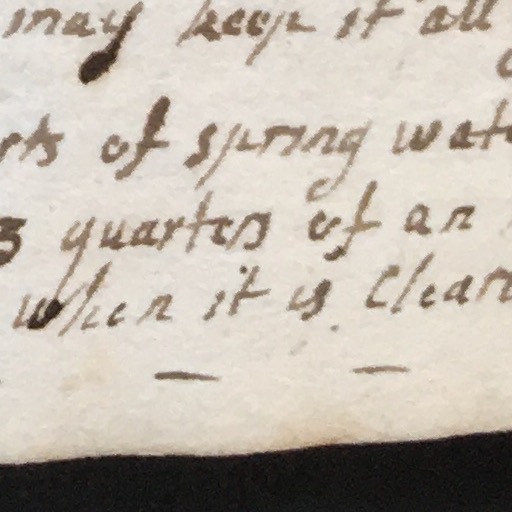 may keep it all
rts of spring wate
3 quarters of an
when it is Clear
— —